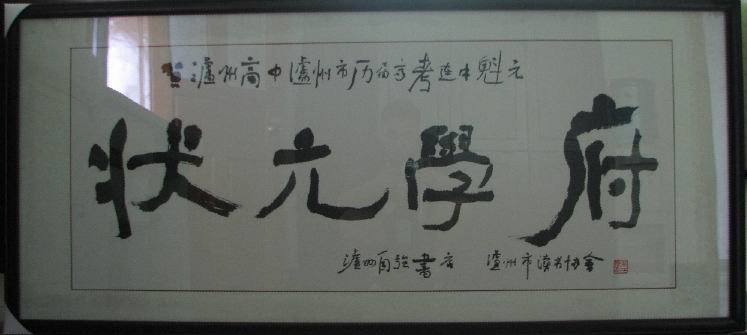 贺泸州高中泸州市历届高考连中魁元
状元學府
泸州自强書店 泸州市读书协会